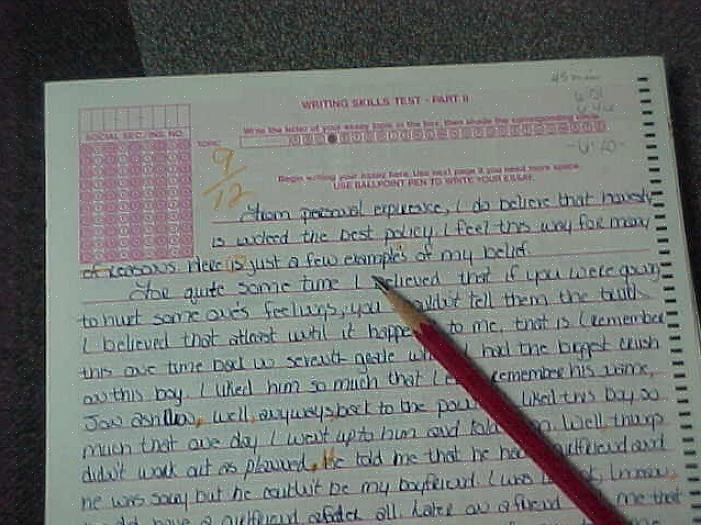 45 min
WRITING SKILLS TEST - PART II
SOCIAL SEC./INS. NO.
Write the letter of your essay topic in the box, then shade the corresponding circle.
TOPIC
9/12
Begin writing your essay here. Use next page if you need more space.
USE BALLPOINT PEN TO WRITE YOUR ESSAY.
From personal experience, I do believe that honesty
is indeed the best policy. I feel this way for many
of reasons. Here is just a few examples of my belief.
For quite some time I believed that if you were going
to hurt some one's feelings, you tell them the truth.
I believed that atleast until it to me, that is I remember
this one time back in seventh grade I had the biggest crush
on this boy. I liked him so much that I remember his name,
Jon well, anyways back to the liked this boy so
much that one day I went up to him and Well, things
didn't work out as planned, He told me that he girlfriend and
he was sorry but he couldn't be my boyfriend. I was I mean
have a girlfriend after all. Later on a friend me that